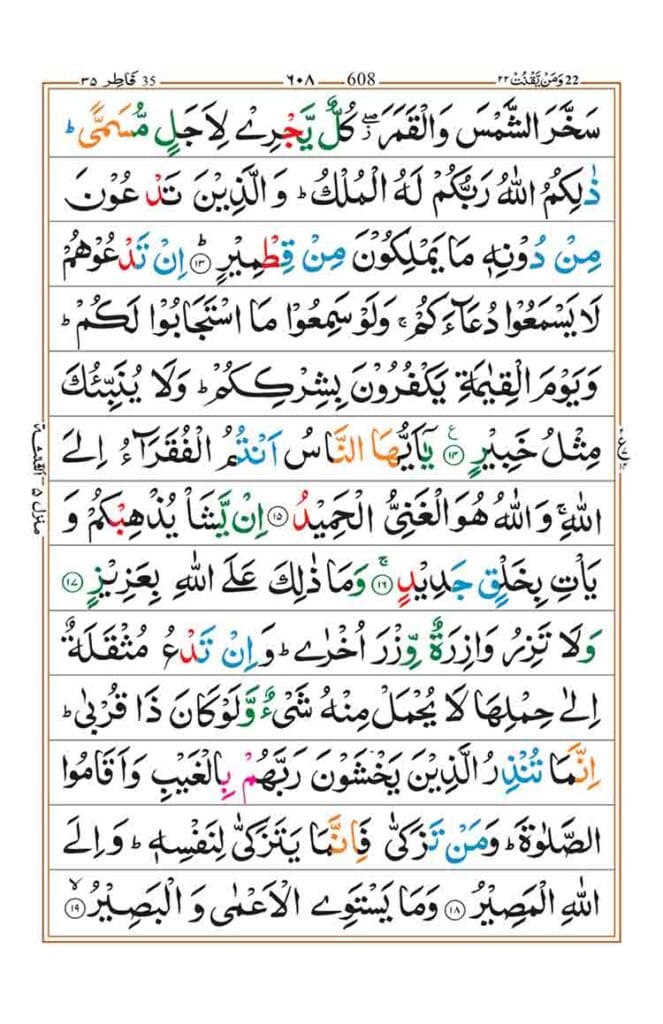 22 وَمَنْ يَّقْنُتْ ٢٢ 608 ٦٠٨ 35 فَاطِر ٣٥
سَخَّرَ الشَّمْسَ وَالْقَمَرَ ۖ كُلٌّ يَّجْرِيْ لِاَجَلٍ مُّسَمًّى ؕ
ذٰلِكُمُ اللّٰهُ رَبُّكُمْ لَهُ الْمُلْكُ ؕ وَالَّذِيْنَ تَدْعُوْنَ
مِنْ دُوْنِهٖ مَا يَمْلِكُوْنَ مِنْ قِطْمِيْرٍ ؕ ﴿۱۳﴾ اِنْ تَدْعُوْهُمْ
لَا يَسْمَعُوْا دُعَآءَكُمْ ۚ وَلَوْ سَمِعُوْا مَا اسْتَجَابُوْا لَكُمْ ؕ
وَيَوْمَ الْقِيٰمَةِ يَكْفُرُوْنَ بِشِرْكِكُمْ ؕ وَلَا يُنَبِّئُكَ
مِثْلُ خَبِيْرٍ ﴿۱۴﴾ يٰۤاَيُّهَا النَّاسُ اَنْتُمُ الْفُقَرَآءُ اِلَى
اللّٰهِ ۚ وَاللّٰهُ هُوَ الْغَنِيُّ الْحَمِيْدُ ﴿۱۵﴾ اِنْ يَّشَاْ يُذْهِبْكُمْ وَ
يَاْتِ بِخَلْقٍ جَدِيْدٍ ۚ ﴿۱۶﴾ وَمَا ذٰلِكَ عَلَى اللّٰهِ بِعَزِيْزٍ ﴿۱۷﴾
وَلَا تَزِرُ وَازِرَةٌ وِّزْرَ اُخْرٰى ؕ وَاِنْ تَدْعُ مُثْقَلَةٌ
اِلٰى حِمْلِهَا لَا يُحْمَلْ مِنْهُ شَيْءٌ وَّلَوْ كَانَ ذَا قُرْبٰى ؕ
اِنَّمَا تُنْذِرُ الَّذِيْنَ يَخْشَوْنَ رَبَّهُمْ بِالْغَيْبِ وَاَقَامُوا
الصَّلٰوةَ ؕ وَمَنْ تَزَكّٰى فَاِنَّمَا يَتَزَكّٰى لِنَفْسِهٖ ؕ وَاِلَى
اللّٰهِ الْمَصِيْرُ ﴿۱۸﴾ وَمَا يَسْتَوِي الْاَعْمٰى وَالْبَصِيْرُ ۙ ﴿۱۹﴾
منزل ۵